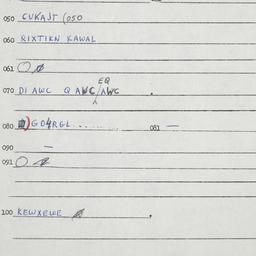 050 CUKAJT (050
060 RIXTIKN KAWAL
061 O
EQ
070 DI AWC Q AWC/AWC .
080 )GO4RGL...... 081 —
090 —
091 O
100 KEWXEWE